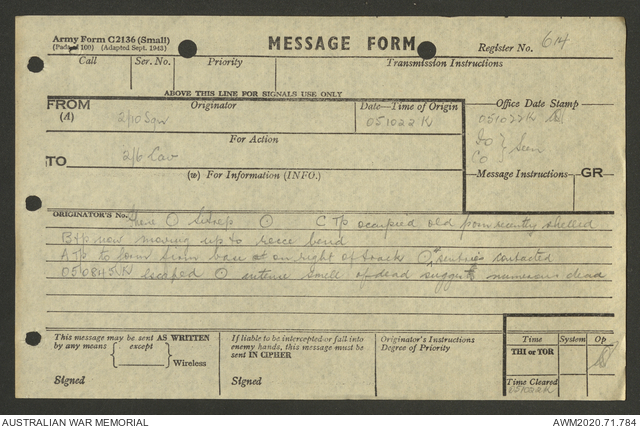 Army Form C2136 (Small)
(Pads of 100) (Adapted Sept. 1943)
MESSAGE FORM
Register No. 64
Call
Ser. No.
Priority
Transmission Instructions
ABOVE THIS LINE FOR SIGNALS USE ONLY
FROM
(A)
Originator
2/10 Sqn
Date—Time of Origin
051022K
Office Date Stamp
051022K
IO } Seen
CO
For Action
TO
2/6 Cav
(w) For Information (INFO.)
Message Instructions
GR
ORIGINATOR'S No.
Sitrep ⊙ C Tp occupied old posn recently shelled
B tp now moving up to recce bend
A Tp to form firm base at on right of track ⊙ sentries contacted
050845K escaped ⊙ intense smell of dead suggests numerous dead
This message may be sent AS WRITTEN
by any means { except } Wireless
Signed
If liable to be intercepted or fall into
enemy hands, this message must be
sent IN CIPHER
Signed
Originator's Instructions
Degree of Priority
Time
System
Op
THI or TOR
Time Cleared
051022K
AUSTRALIAN WAR MEMORIAL
AWM2020.71.784